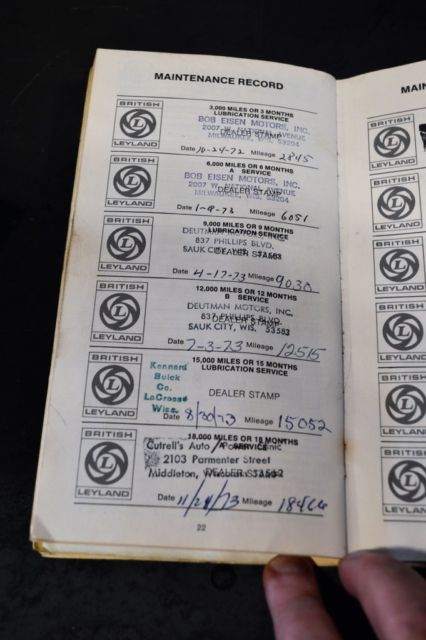 MAINTENANCE RECORD
MAI
BRITISH
L
LEYLAND
3,000 MILES OR 3 MONTHS
LUBRICATION SERVICE
BOB EISEN MOTORS, INC.
DEALER STAMP
2007 W. NATIONAL AVENUE
MILWAUKEE, WIS. 53204
Date 10-24-72 Mileage 2845
BRITISH
L
LEYLAND
6,000 MILES OR 6 MONTHS
A SERVICE
BOB EISEN MOTORS, INC.
DEALER STAMP
2007 W. NATIONAL AVENUE
MILWAUKEE, WIS. 53204
Date 1-9-73 Mileage 6051
BRITISH
L
LEYLAND
9,000 MILES OR 9 MONTHS
LUBRICATION SERVICE
DEUTMAN
837 PHILLIPS BLVD.
SAUK CITY, WIS. 53583
DEALER STAMP
Date 4-17-73 Mileage 9030
BRITISH
L
LEYLAND
12,000 MILES OR 12 MONTHS
B SERVICE
DEUTMAN MOTORS, INC.
837 PHILLIPS BLVD.
DEALER STAMP
SAUK CITY, WIS. 53583
Date 7-3-73 Mileage 12515
BRITISH
L
LEYLAND
15,000 MILES OR 15 MONTHS
LUBRICATION SERVICE
Kennard
Buick
Co.
LaCrosse
Wisc.
DEALER STAMP
Date 8/30/73 Mileage 15052
BRITISH
L
LEYLAND
18,000 MILES OR 18 MONTHS
A SERVICE
Cutrell's Auto Clinic
2103 Parmenter Street
Middleton, Wisconsin
DEALER STAMP
Date 11/24/73 Mileage 18466
22
BRITISH
L
LEYLAND
BRITISH
L
LEYLAND
BRITISH
L
LEYLAND
BRITISH
L
LEYLAND
BRITISH
L
LEYLAND
BRITISH
L
LEYLAND